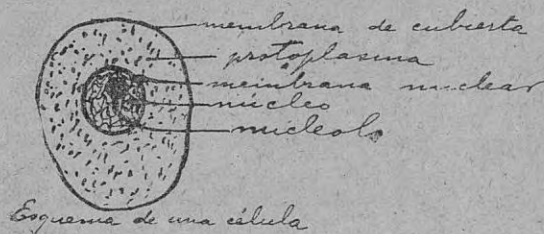 membrana de cubierta
protoplasma
membrana nuclear
núcleo
nucleolo
Esquema de una célula